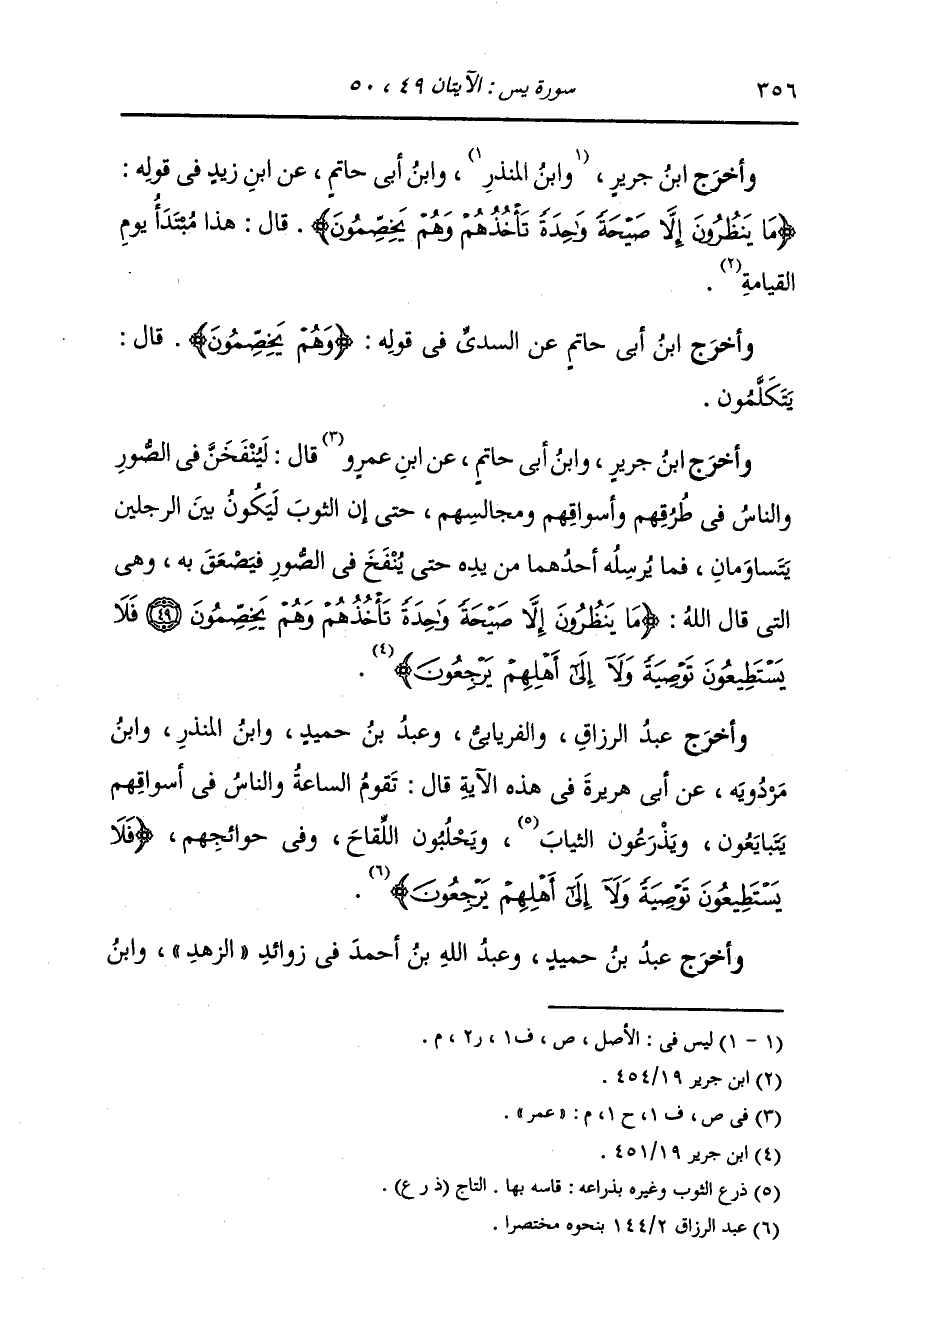 ٣٥٦ سورة يس : الآيتان ٤٩ ، ٥٠
وأخرَج ابنُ جريرٍ ، ‏(١‏وابنُ المنذرِ ١) ، وابنُ أبى حاتمٍ ، عن ابنِ زيدٍ فى قولِه :
﴿مَا يَنظُرُونَ إِلَّا صَيْحَةً وَٰحِدَةً تَأْخُذُهُمْ وَهُمْ يَخِصِّمُونَ﴾ . قال : هذا مُبْتَدَأُ يومِ
القيامةِ(٢) .
وأخرَج ابنُ أبى حاتمٍ عن السدىِّ فى قولِه : ﴿وَهُمْ يَخِصِّمُونَ﴾ . قال :
يَتَكَلَّمُون .
وأخرَج ابنُ جريرٍ ، وابنُ أبى حاتمٍ ، عن ابنِ عمرٍو(٣) قال : لَيُنْفَخَنَّ فى الصُّورِ
والناسُ فى طُرُقِهم وأسواقِهم ومجالسِهم ، حتى إن الثوبَ لَيَكُونُ بينَ الرجلين
يَتَساوَمانِ ، فما يُرسِلُه أحدُهما من يدِه حتى يُنْفَخَ فى الصُّورِ فيَصْعَقَ به ، وهى
التى قال اللهُ : ﴿مَا يَنظُرُونَ إِلَّا صَيْحَةً وَٰحِدَةً تَأْخُذُهُمْ وَهُمْ يَخِصِّمُونَ ٤٩ فَلَا
يَسْتَطِيعُونَ تَوْصِيَةً وَلَآ إِلَىٰٓ أَهْلِهِمْ يَرْجِعُونَ﴾(٤) .
وأخرَج عبدُ الرزاقِ ، والفريابىُّ ، وعبدُ بنُ حميدٍ ، وابنُ المنذرِ ، وابنُ
مَرْدُويَه ، عن أبى هريرةَ فى هذه الآيةِ قال : تَقومُ الساعةُ والناسُ فى أسواقِهم
يَتَبايَعُون ، ويَذْرَعُون الثيابَ(٥) ، ويَحْلُبُون اللِّقاحَ ، وفى حوائجِهم ، ﴿فَلَا
يَسْتَطِيعُونَ تَوْصِيَةً وَلَآ إِلَىٰٓ أَهْلِهِمْ يَرْجِعُونَ﴾(٦) .
وأخرَج عبدُ بنُ حميدٍ ، وعبدُ اللهِ بنُ أحمدَ فى زوائدِ « الزهدِ » ، وابنُ
(١ - ١) ليس فى : الأصل ، ص ، ف١ ، ر٢ ، م .
(٢) ابن جرير ١٩/ ٤٥٤ .
(٣) فى ص ، ف ١ ، ح ١ ، م : « عمر » .
(٤) ابن جرير ١٩/ ٤٥١ .
(٥) ذرع الثوب وغيره بذراعه : قاسه بها . التاج (ذ ر ع) .
(٦) عبد الرزاق ٢/ ١٤٤ بنحوه مختصرا .